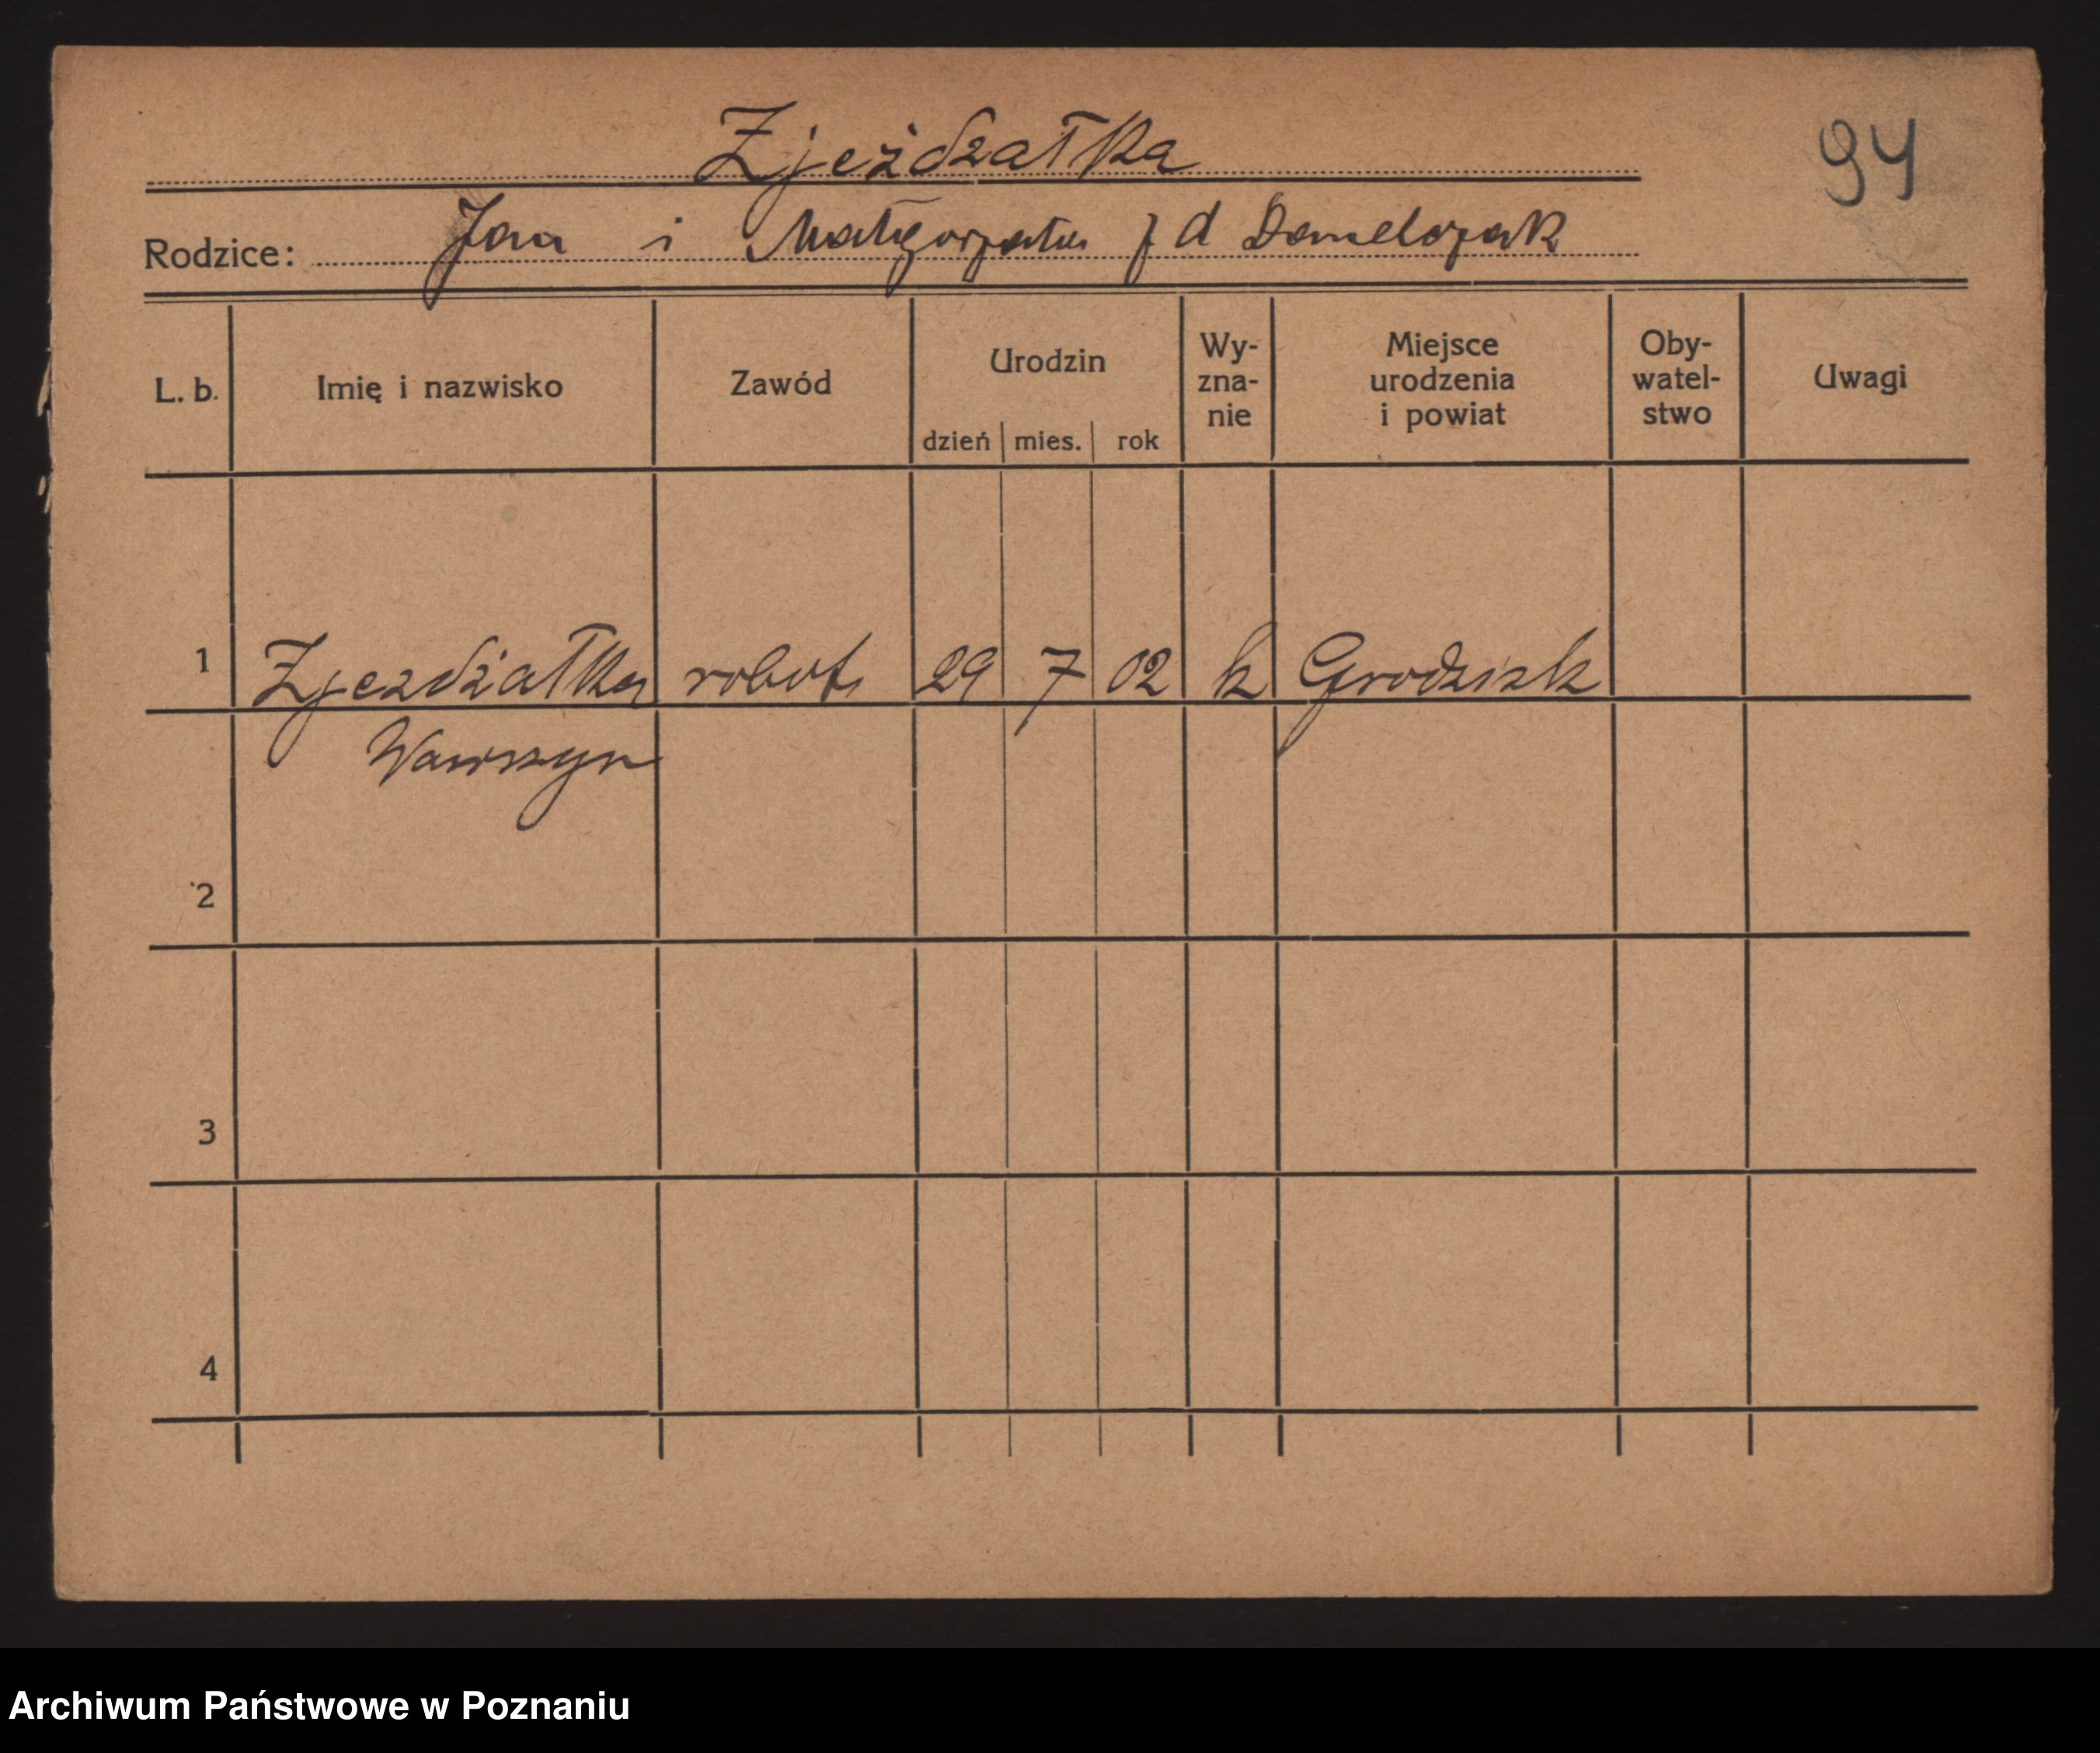 Zjeżdżałka
94
Rodzice: Jan i Małgorzata z d Danielczak
L. b. Imię i nazwisko Zawód Urodzin dzień mies. rok Wy-zna-nie Miejsce urodzenia i powiat Oby-watel-stwo Uwagi
1 Zjezdżałka robot 29 7 02 k Grodzisk
Wawrzyn
2
3
4
Archiwum Państwowe w Poznaniu